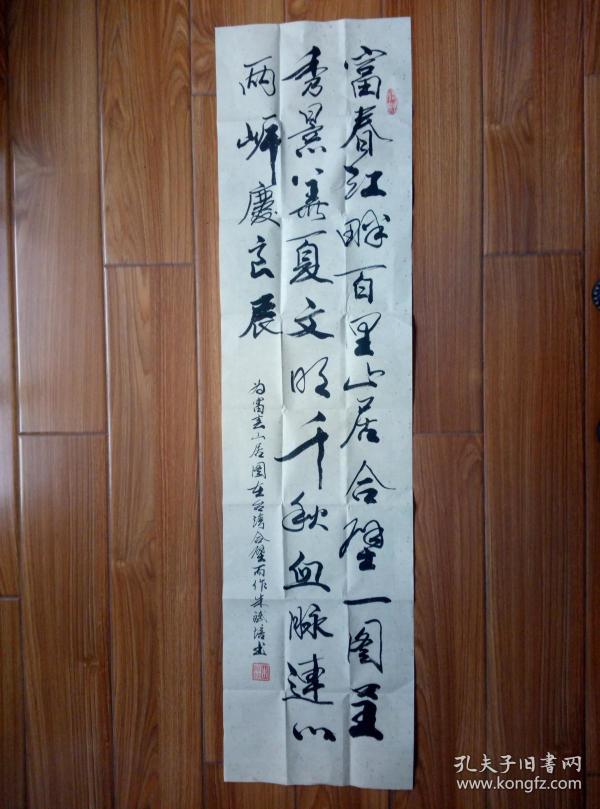 富春江畔百里山居合璧一图呈
秀景华夏文明千秋血脉连心
两岸庆良辰
为富春山居图在台湾合璧而作朱
书
孔夫子旧书网
www.kongfz.com